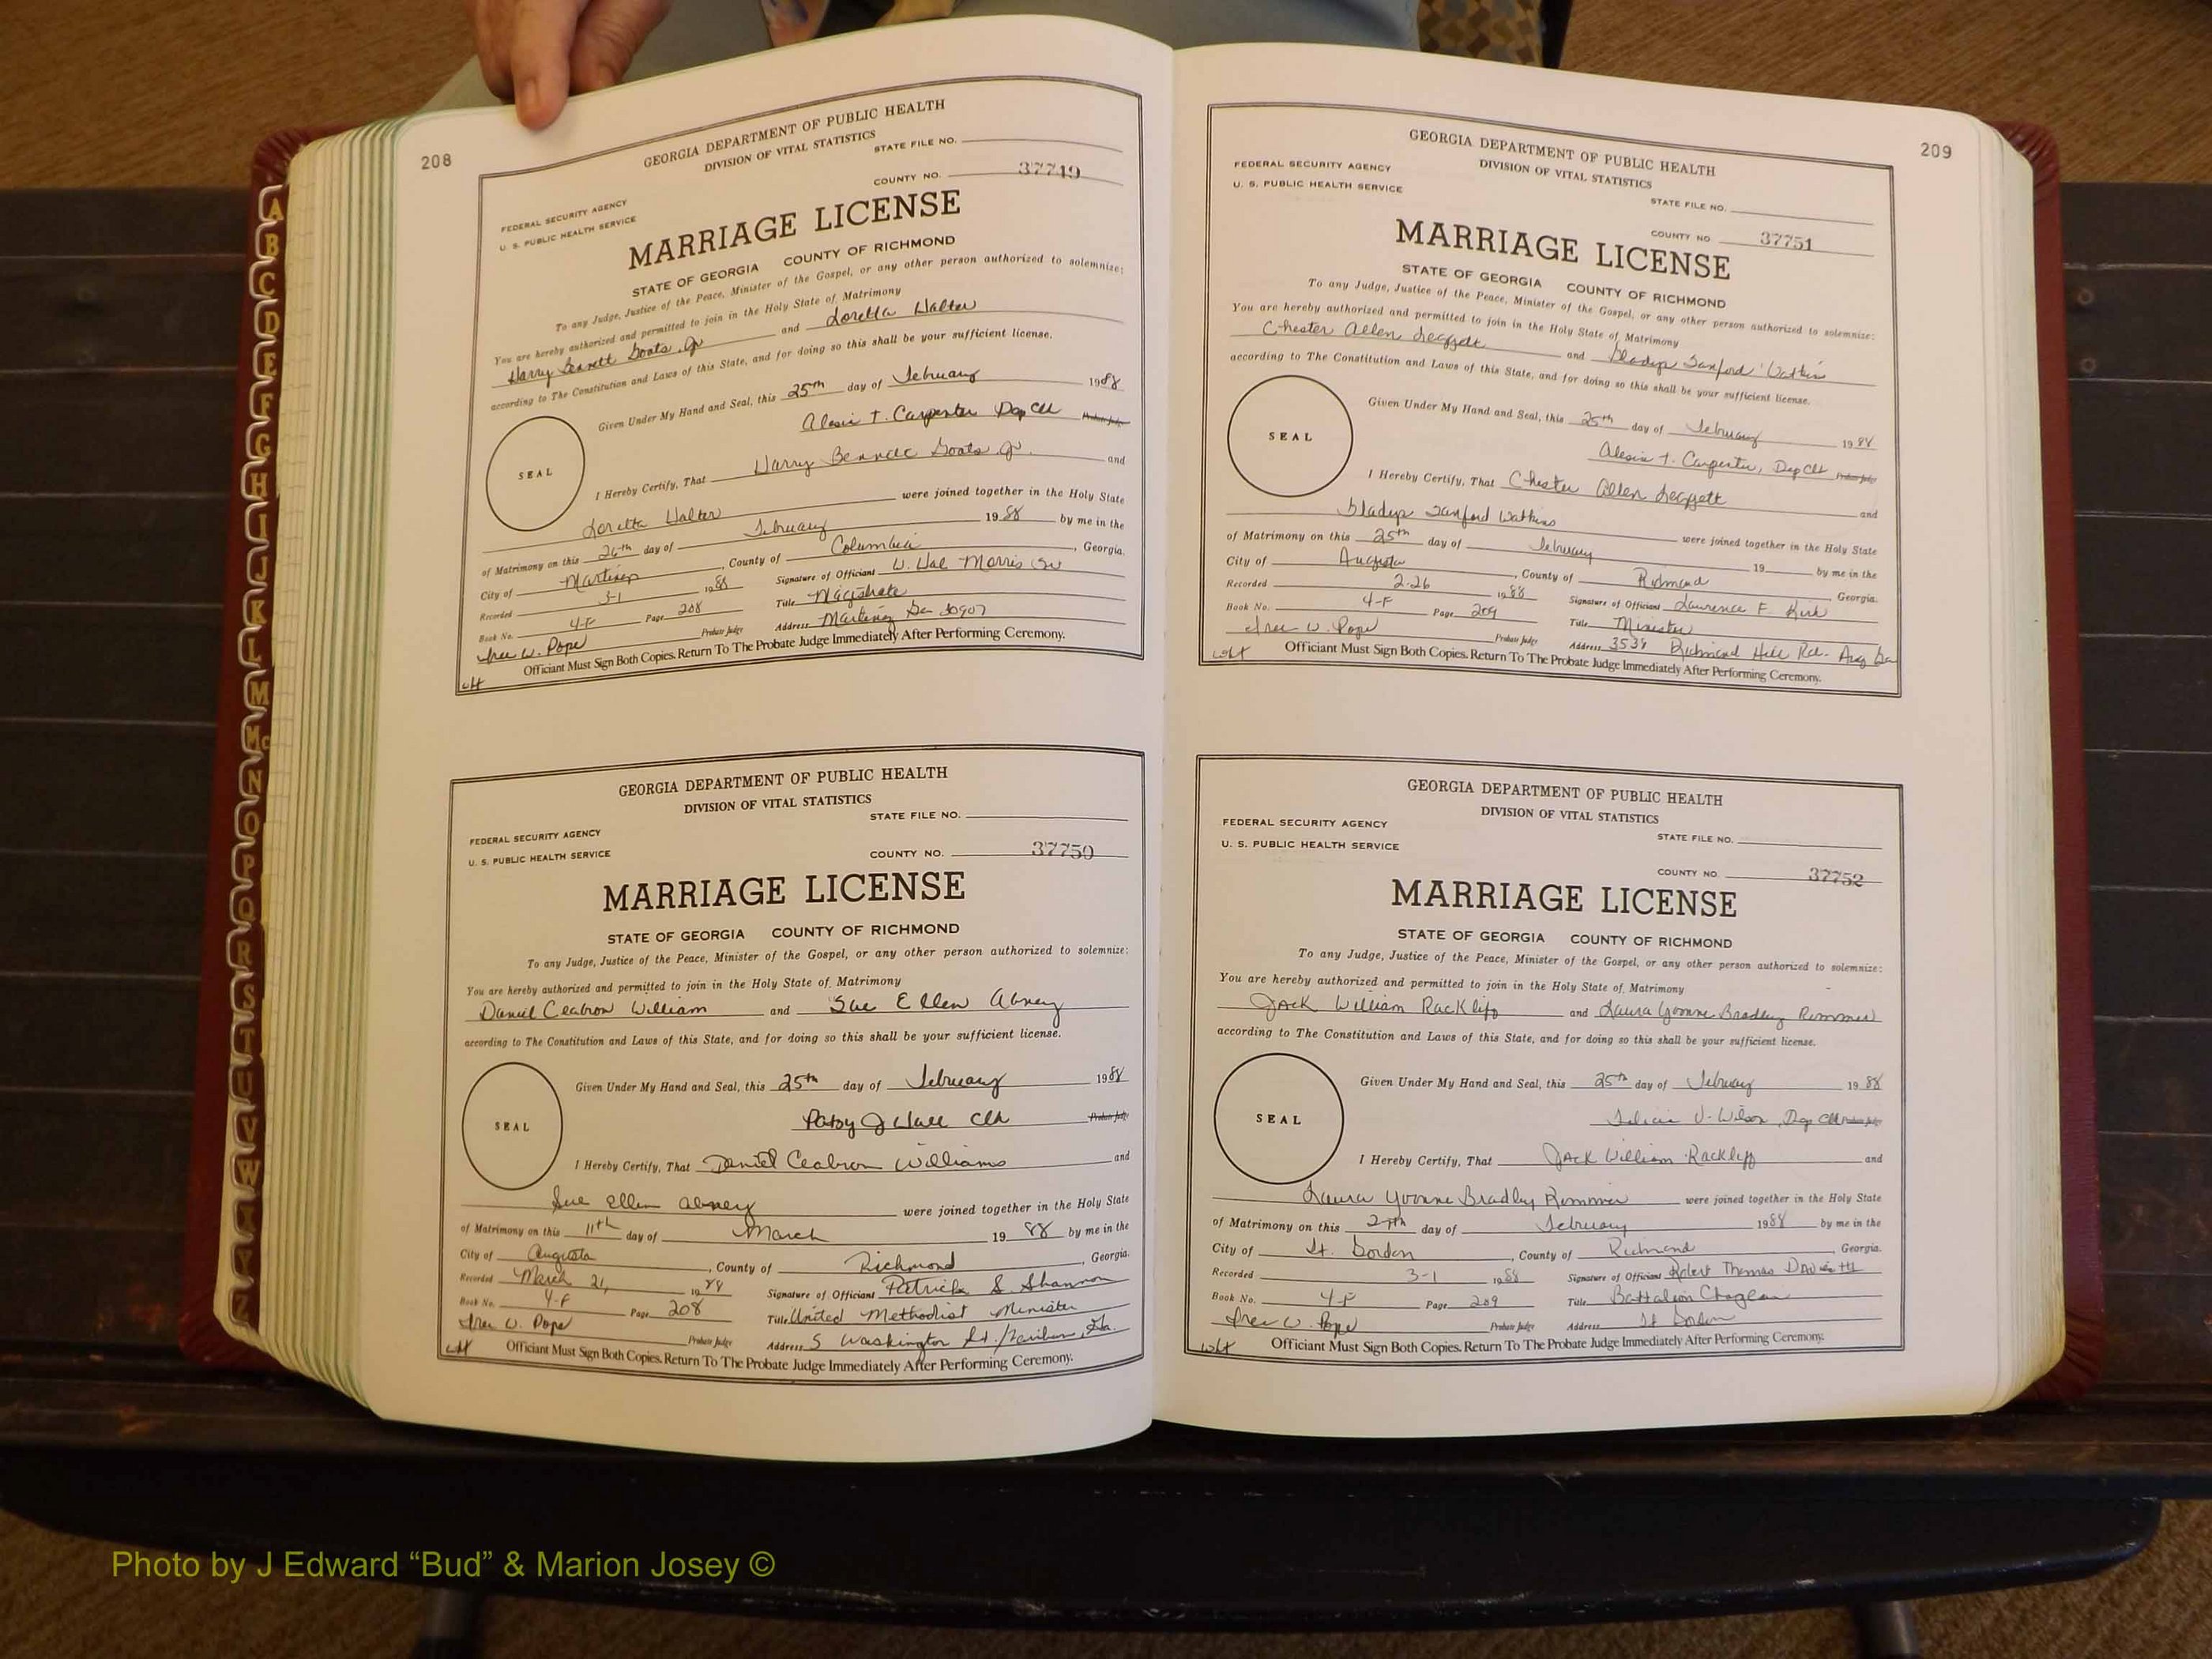 208
GEORGIA DEPARTMENT OF PUBLIC HEALTH
DIVISION OF VITAL STATISTICS
STATE FILE NO.
FEDERAL SECURITY AGENCY
U. S. PUBLIC HEALTH SERVICE
COUNTY NO. 37749
MARRIAGE LICENSE
STATE OF GEORGIA COUNTY OF RICHMOND
To any Judge, Justice of the Peace, Minister of the Gospel, or any other person authorized to solemnize:
You are hereby authorized and permitted to join in the Holy State of Matrimony
Harry Bennett Goats Jr and Loretta Walter
according to The Constitution and Laws of this State, and for doing so this shall be your sufficient license.
Given Under My Hand and Seal, this 25th day of February 1988
Alesia T. Carpenter Dep Clk Probate Judge
SEAL
I Hereby Certify, That Harry Goats Jr. and
Loretta Walter were joined together in the Holy State
of Matrimony on this 26th day of February 1988 by me in the
City of Martinez, County of Columbia, Georgia.
Recorded 3-1 1988 Signature of Officiant W. Hal Morris Sr
Book No. 4-F Page 208 Title Magistrate
W. Pope Probate Judge Address Martinez Ga 30907
wht Officiant Must Sign Both Copies. Return To The Probate Judge Immediately After Performing Ceremony.
GEORGIA DEPARTMENT OF PUBLIC HEALTH
DIVISION OF VITAL STATISTICS
STATE FILE NO.
FEDERAL SECURITY AGENCY
U. S. PUBLIC HEALTH SERVICE
COUNTY NO. 37750
MARRIAGE LICENSE
STATE OF GEORGIA COUNTY OF RICHMOND
To any Judge, Justice of the Peace, Minister of the Gospel, or any other person authorized to solemnize:
You are hereby authorized and permitted to join in the Holy State of Matrimony
Daniel Ceabron William and Sue Ellen Abney
according to The Constitution and Laws of this State, and for doing so this shall be your sufficient license.
Given Under My Hand and Seal, this 25th day of February 1988
Patsy J Wall Clk Probate Judge
SEAL
I Hereby Certify, That Daniel Ceabron Williams and
Sue Ellen Abney were joined together in the Holy State
of Matrimony on this 11th day of March 1988 by me in the
City of Augusta, County of Richmond, Georgia.
Recorded March 21, 1988 Signature of Officiant Patrick S Shannon
Book No. 4-F Page 208 Title United Methodist Minister
W. Pope Probate Judge Address S Washington St. Ga.
wht Officiant Must Sign Both Copies. Return To The Probate Judge Immediately After Performing Ceremony.
209
GEORGIA DEPARTMENT OF PUBLIC HEALTH
DIVISION OF VITAL STATISTICS
FEDERAL SECURITY AGENCY
U. S. PUBLIC HEALTH SERVICE
STATE FILE NO.
COUNTY NO 37751
MARRIAGE LICENSE
STATE OF GEORGIA COUNTY OF RICHMOND
To any Judge, Justice of the Peace, Minister of the Gospel, or any other person authorized to solemnize:
You are hereby authorized and permitted to join in the Holy State of Matrimony
Chester Allen Leggett and Gladys Sanford Watkins
according to The Constitution and Laws of this State, and for doing so this shall be your sufficient license.
Given Under My Hand and Seal, this 25th day of February 1988
Alesia T. Carpenter, Dep Clk Probate Judge
SEAL
I Hereby Certify, That Chester Allen Leggett and
Gladys Sanford Watkins were joined together in the Holy State
of Matrimony on this 25th day of February 19 by me in the
City of Augusta, County of Richmond Georgia.
Recorded 2-26 1988 Signature of Officiant Laurence F. Kirk
Book No. 4-F Page 209 Title Minister
W. Pope Probate Judge Address 3538 Richmond Hill Rd. Aug Ga
wht Officiant Must Sign Both Copies. Return To The Probate Judge Immediately After Performing Ceremony.
GEORGIA DEPARTMENT OF PUBLIC HEALTH
DIVISION OF VITAL STATISTICS
FEDERAL SECURITY AGENCY
STATE FILE NO.
U. S. PUBLIC HEALTH SERVICE
COUNTY NO. 37752
MARRIAGE LICENSE
STATE OF GEORGIA COUNTY OF RICHMOND
To any Judge, Justice of the Peace, Minister of the Gospel, or any other person authorized to solemnize:
You are hereby authorized and permitted to join in the Holy State of Matrimony
Jack William Rackliff and Laura Yvonne Bradley Rimmer
according to The Constitution and Laws of this State, and for doing so this shall be your sufficient license.
Given Under My Hand and Seal, this 25th day of February 1988
Felicia V. Wilson, Dep Clk Probate Judge
SEAL
I Hereby Certify, That Jack William Rackliff and
Laura Yvonne Bradley Rimmer were joined together in the Holy State
of Matrimony on this day of February 1988 by me in the
City of Ft. Gordon, County of Richmond Georgia.
Recorded 3-1 1988 Signature of Officiant Robert Thomas
Book No. 4-F Page 209 Title Battalion Chaplain
W. Pope Probate Judge Address Ft Gordon
wht Officiant Must Sign Both Copies. Return To The Probate Judge Immediately After Performing Ceremony.
A
B
C
D
E
F
G
H
I
J
K
L
M
Mc
N
O
P
Q
R
S
T
U
V
W
X
Y
Z
Photo by J Edward “Bud” & Marion Josey ©